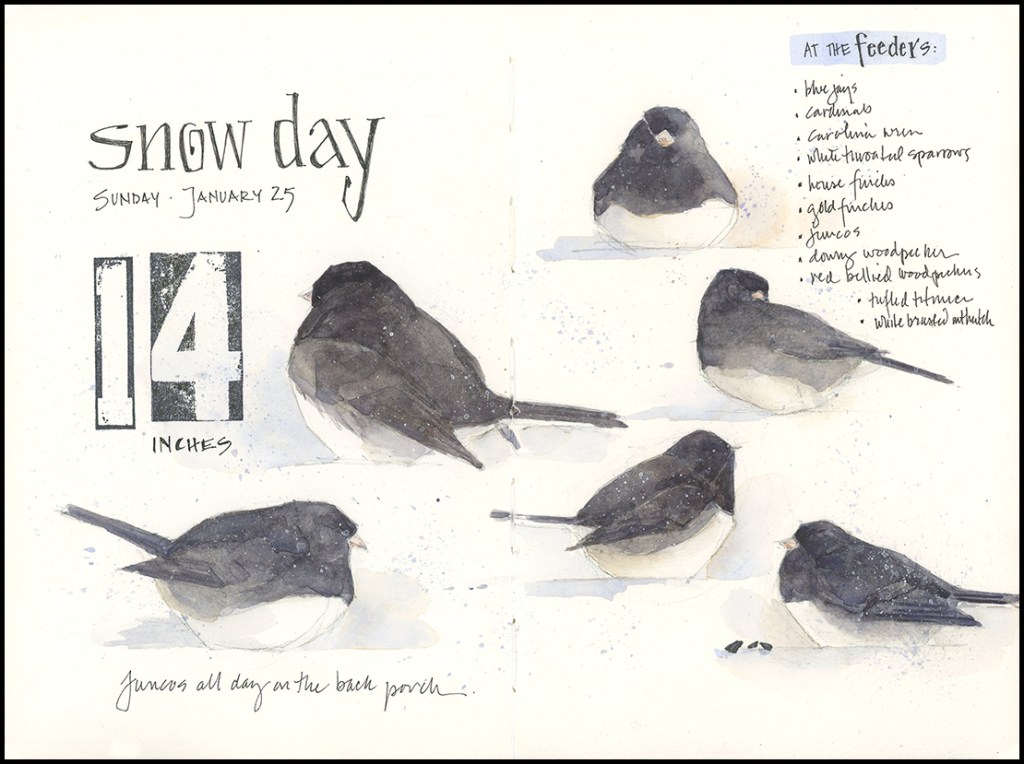 snow day
SUNDAY · JANUARY 25
14
INCHES
Juncos all day on the back porch.
AT THE feeders:
• blue jays
• cardinals
• carolina wren
• white throated sparrows
• house finches
• gold finches
• juncos
• downy woodpecker
• red bellied woodpeckers
• tufted titmice
• white breasted nuthatch